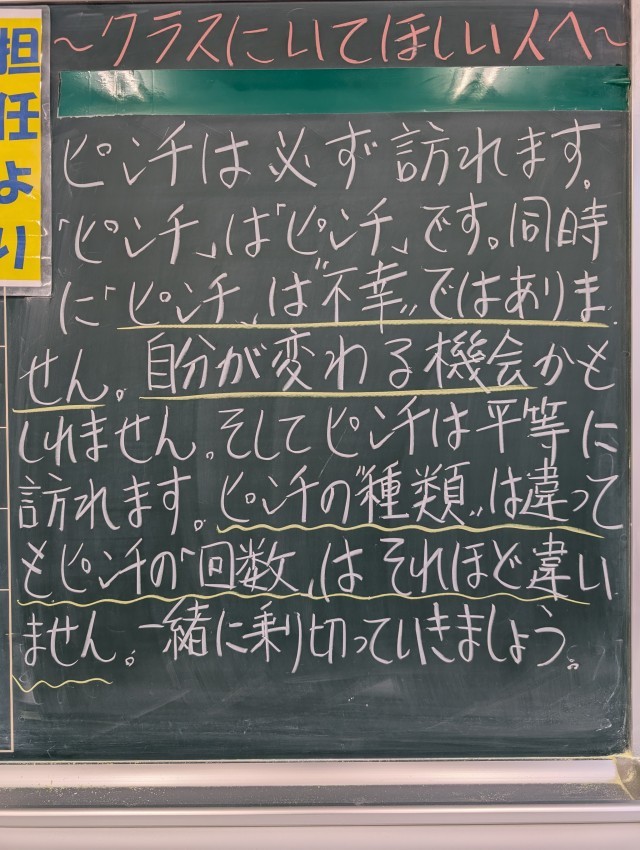 担任より
～クラスにいてほしい人へ～
ピンチは必ず訪れます。
「ピンチ」は「ピンチ」です。同時
に「ピンチ」は"不幸"ではありま
せん。自分が変わる機会かも
しれません。そしてピンチは平等に
訪れます。ピンチの"種類"は違って
もピンチの「回数」はそれほど違い
ません。一緒に乗り切っていきましょう。